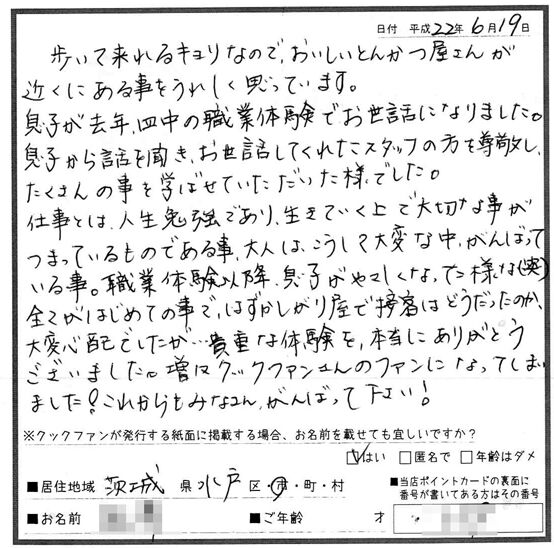 日付 平成22年6月19日
歩いて来れるキョリなので、おいしいとんかつ屋さんが
近くにある事をうれしく思っています。
息子が去年、四中の職業体験でお世話になりました。
息子から話を聞き、お世話してくれたスタッフの方を尊敬し、
たくさんの事を学ばせていただいた様でした。
仕事とは、人生勉強であり、生きていく上で大切な事が
つまっているものである事、大人は、こうして大変な中、がんばって
いる事。職業体験以降、息子がやさしくなってた様な(笑)
全てがはじめての事で、はずかしがり屋で接客はどうだったのか、
大変心配でしたが…貴重な体験を、本当にありがとう
ございました。増々クックファンさんのファンになってしまい
ました!これからもみなさん、がんばって下さい!
※クックファンが発行する紙面に掲載する場合、お名前を載せても宜しいですか?
はい □匿名で □年齢はダメ
■居住地域 茨城 県 水戸 区・市・町・村
■当店ポイントカードの裏面に
番号が書いてある方はその番号
■お名前 ■ご年齢 才